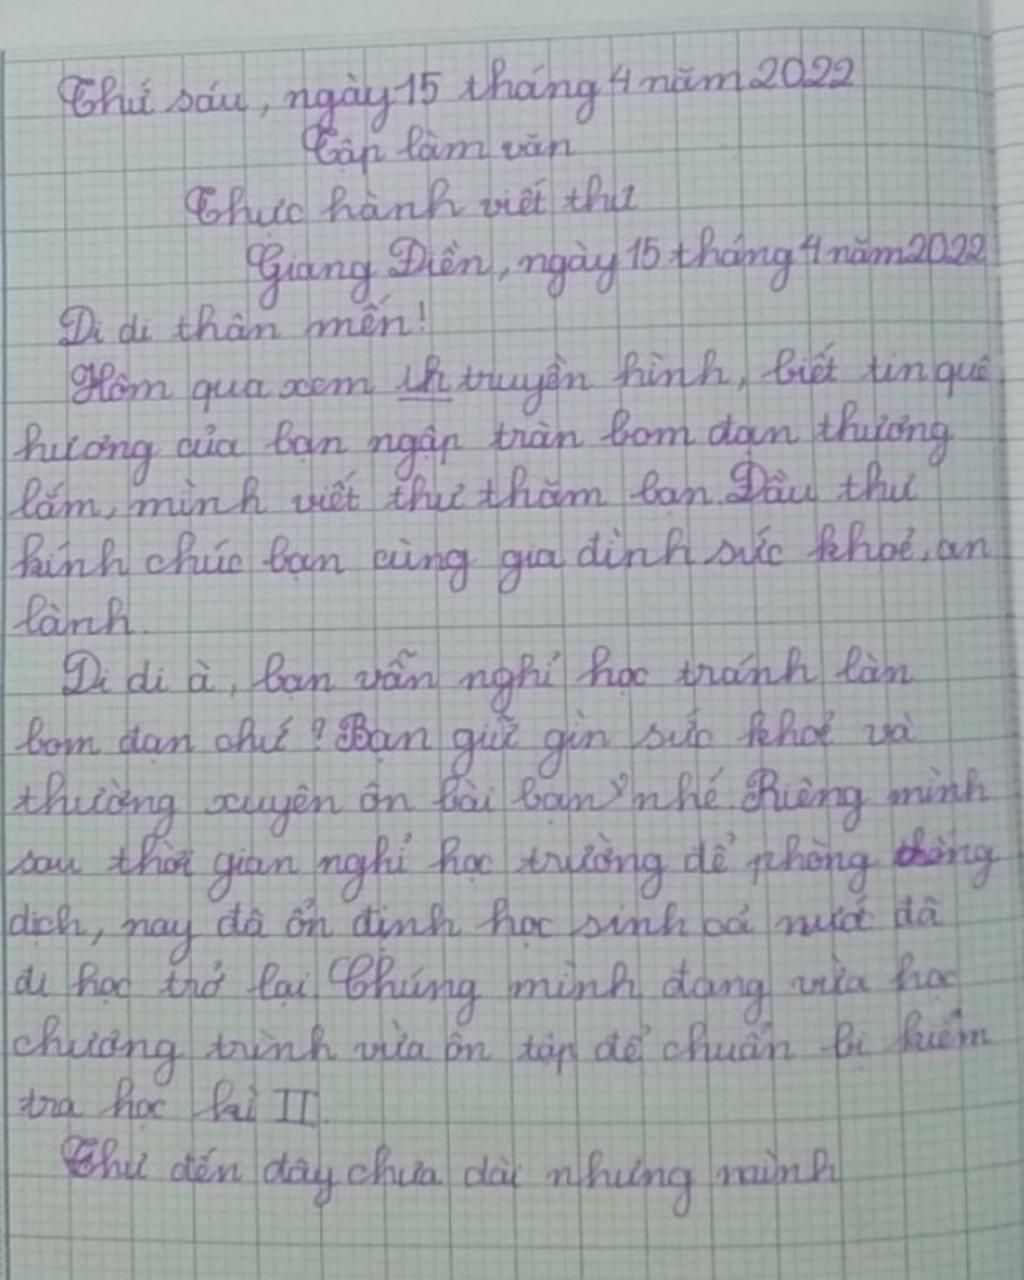 Thứ sáu, ngày 15 tháng 4 năm 2022
Tập làm văn
Thực hành viết thư
Giang Điền, ngày 15 tháng 4 năm 2022
Di di thân mến!
Hôm qua xem th truyền hình, biết tin quê
hương của bạn ngập tràn bom đạn thương
lắm, mình viết thư thăm bạn. Đầu thư
kính chúc bạn cùng gia đình sức khoẻ, an
lành.
Di di à, bạn vẫn nghỉ học tránh làn
bom đạn chứ? Bạn giữ gìn sức khoẻ và
thường xuyên ôn bài bạn nhé. Riêng mình
sau thời gian nghỉ học trường để phòng chống
dịch, nay đã ổn định học sinh cả nước đã
đi học trở lại. Chúng mình đang vừa học
chương trình vừa ôn tập để chuẩn bị kiểm
tra học kì II.
Thư đến đây chưa dài nhưng mình